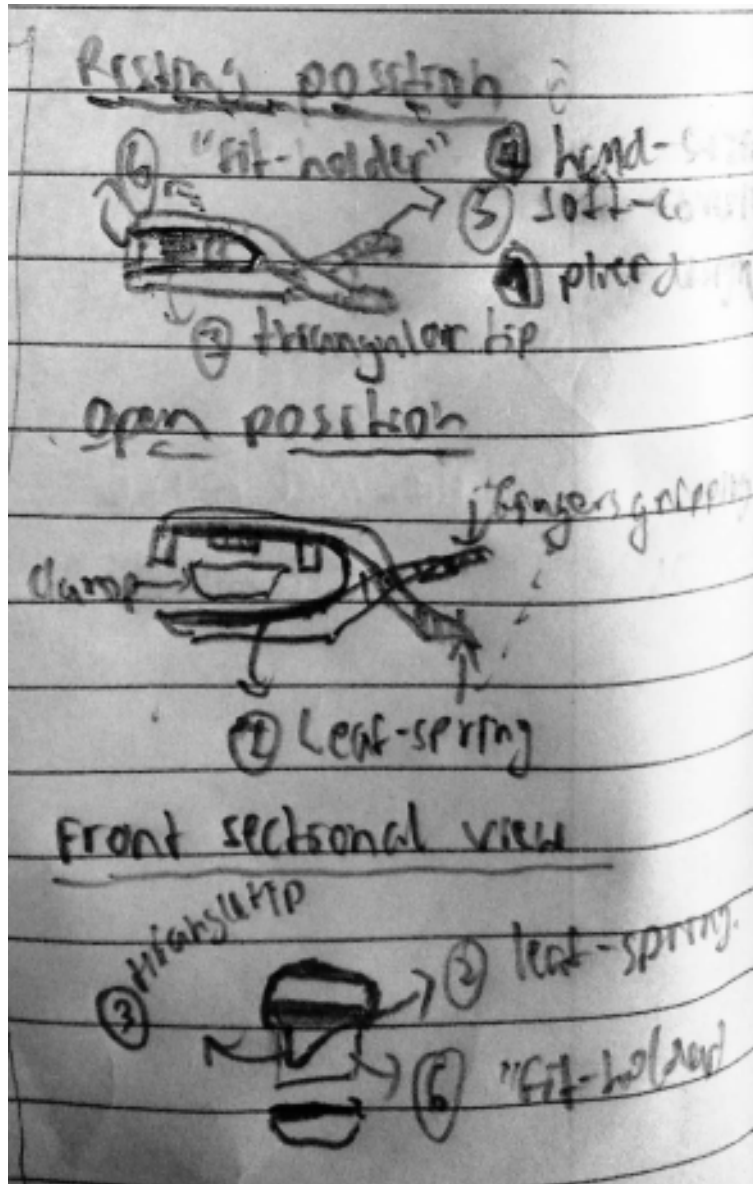 Resting position
⑥ "fit-holder" ④ hand-
⑤ soft-
① plier design
③ triangular tip
Open position
fingers gripping
clamp
② Leaf-spring
Front sectional view
③ triangular tip
② leaf-spring.
⑥ "fit-holder"